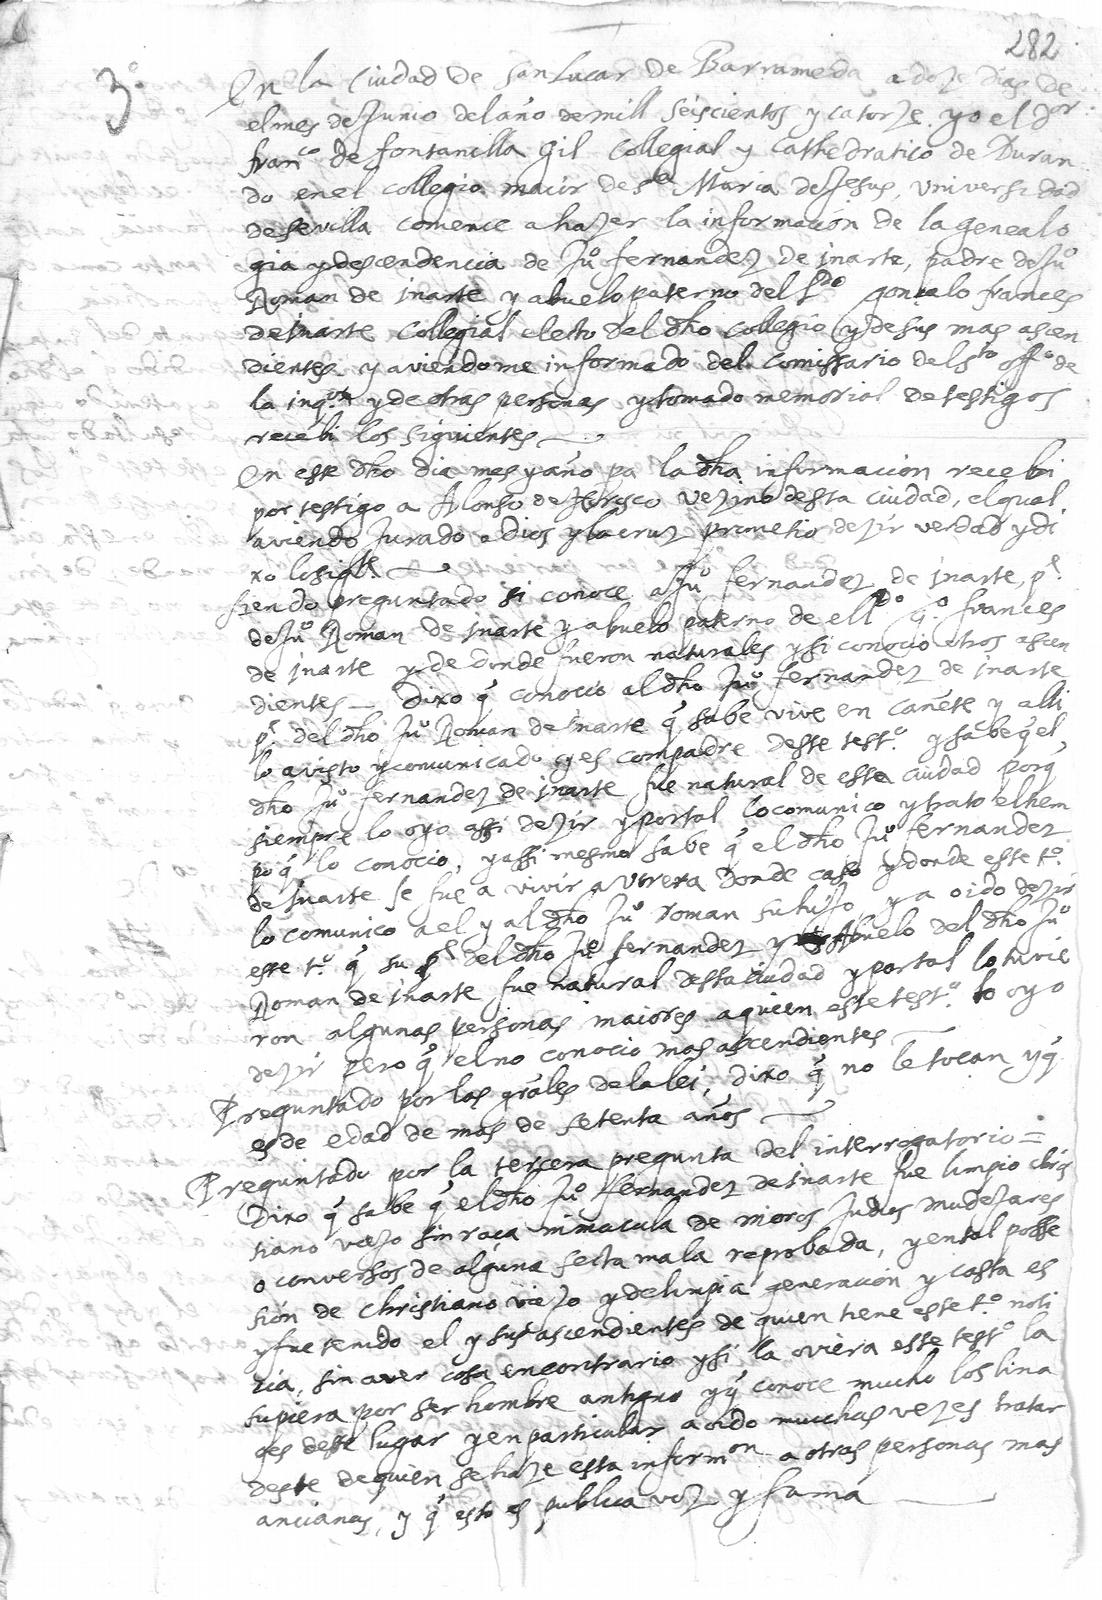 282
3º
En la Ciudad de San Lucar de Barrameda a doze dias de
el mes de Junio del año de mill seiscientos y catorze. yo el Dor
franco de fontanilla Gil Collegial y Cathedratico de Duran
do en el collegio maior de sta Maria de Jesus, Universidad
de sevilla comence a hazer la informacion de la genealo
gia y descendencia de Juº fernandez de inarte, padre de Juº
Roman de inarte y abuelo paterno del Ldo gonzalo frances
de inarte Collegial electo del dho collegio y de sus mas ascen
dientes y aviendome informado del Comissario del sto offº de
la inqon y de otras personas y tomado memorial de testigos
recebi los siguientes
En este dho dia mes y año pa la dha informacion recebi
por testigo a Alonso de vezino desta ciudad, el qual
aviendo jurado a Dios y la cruz prometio dezir verdad y di
xo lo sigte.
siendo preguntado si conoce a Juº fernandez de inarte, pe.
de Juº Roman de inarte y abuelo paterno de el Ldo gº. frances
de inarte y de donde fueron naturales y si conocio otros ascen
dientes – dixo q̃ conocio al dho Juº fernandez de inarte
pe. del dho Juº Roman de inarte q̃ sabe vive en cañete y alli
lo a visto y comunicado y es compadre deste testº. y sabe q̃ el
dho Juº fernandez de inarte fue natural de esta ciudad porq̃
siempre lo oyo assi dezir y por tal lo comunico y trato el tiem
po q̃ lo conocio, y assi mesmo sabe q̃ el dho Juº fernandez
de inarte se fue a vivir a Utrera donde caso y donde este tº.
lo comunico a el y al dho Juº roman su hijo y a oido dezir
este tº. q̃ su pe del dho Juº fernandez y Abuelo del dho Juº
Roman de inarte fue natural desta ciudad y por tal lo tuvie
ron algunas personas maiores a quien este testº. lo oyo
dezir pero q̃ el no conocio mas ascendientes
Preguntado por las grãles de la lei, dixo q̃ no le tocan y q̃
es de edad de mas de setenta años
Preguntado por la tercera pregunta del interrogatorio =
Dixo q̃ sabe q̃ el dho Juº fernandez de inarte fue limpio chris
tiano viejo sin raça ni macula de moros Judios mudejares
o conversos de alguna secta mala reprobada, y en tal posse
sion de christiano viejo y de limpia generacion y casta es
y fue tenido el y sus ascendientes de quien tiene este tº. noti
cia, sin aver cosa en contrario y si la oviera este testº la
supiera por ser hombre antiguo y q̃ conoce mucho los lina
ges deste lugar y en particular a oido muchas vezes tratar
deste de quien se haze esta informon a otras personas mas
ancianas, y q̃ esto es publica voz y fama